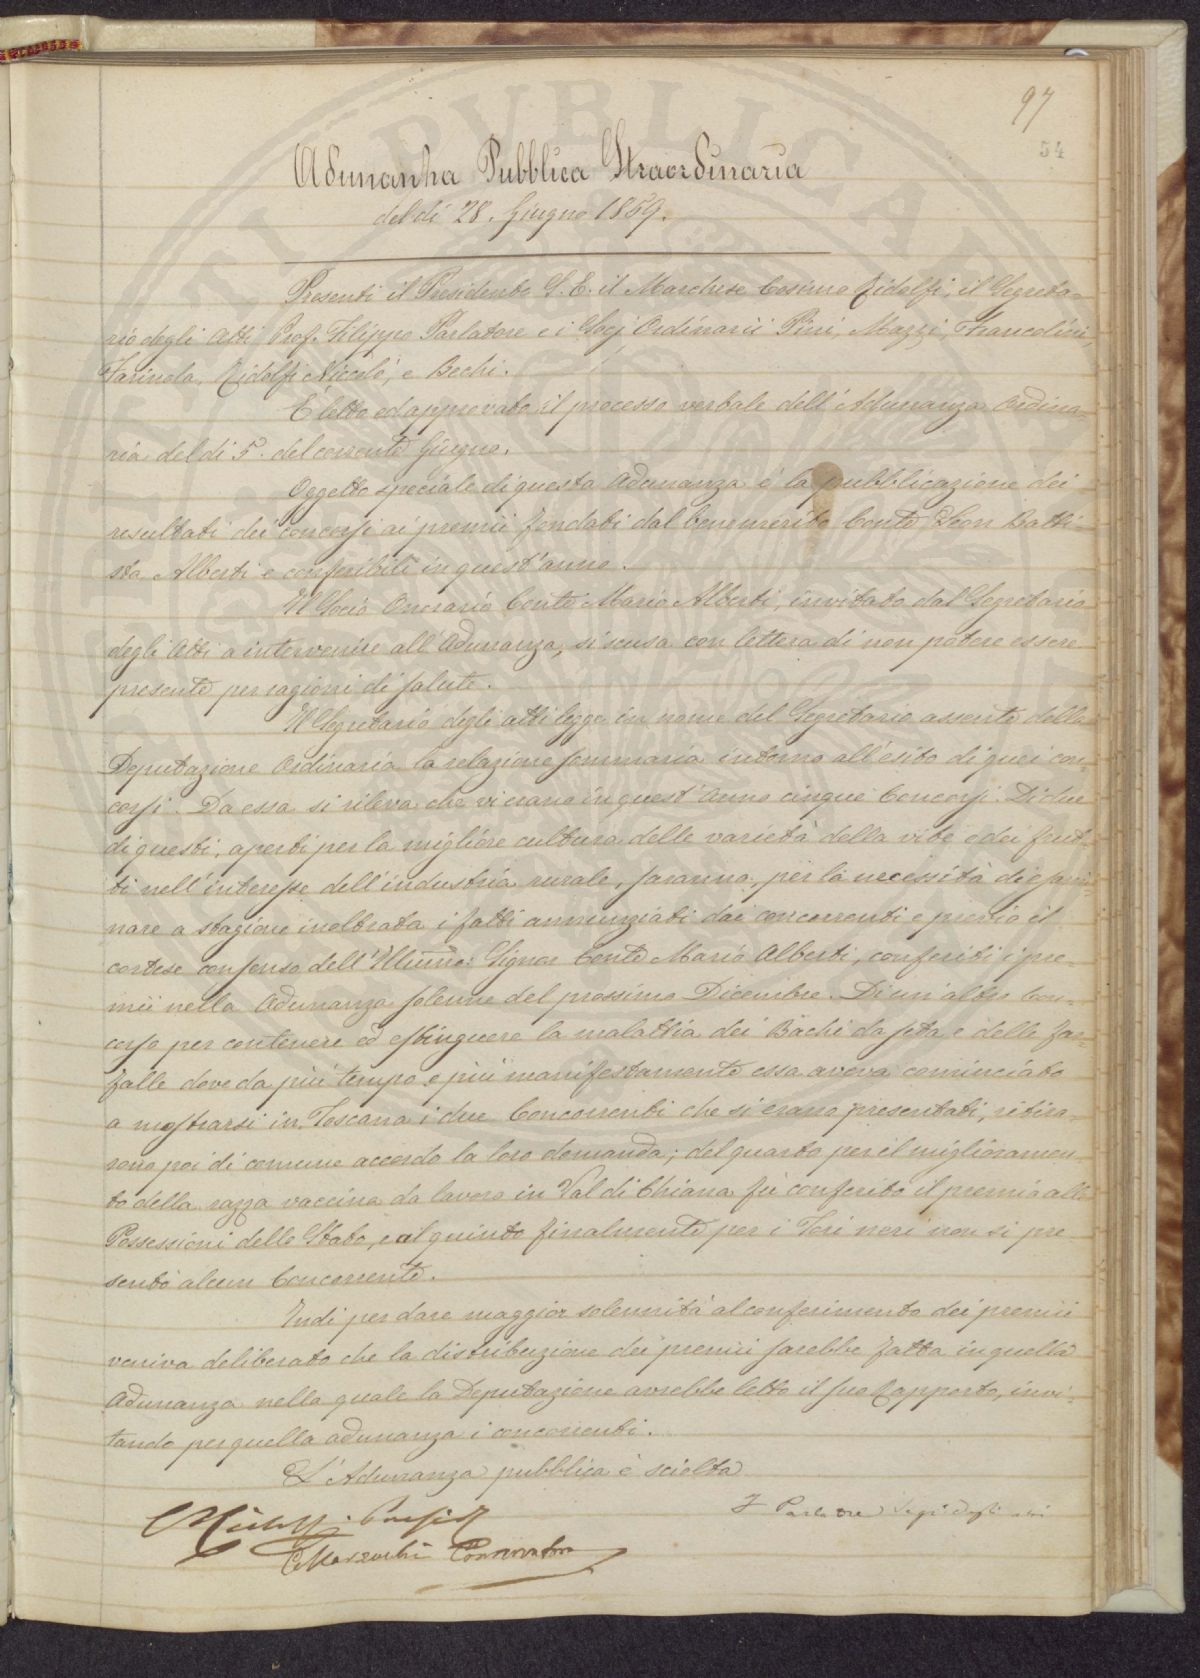 97
54
Adunanza Pubblica Straordinaria
del dì 28. Giugno 1859.
Presenti il Presidente S. E. il Marchese Cosimo Ridolfi, il Segreta-
rio degli Atti Prof. Filippo Parlatore e i Socj Ordinarii Pini, Mazzi, Francolini,
Farinola, Ridolfi Niccolò, e Bechi.
È letto ed approvato il processo verbale dell'Adunanza Ordina-
ria del dì 5. del corrente Giugno.
Oggetto speciale di questa Adunanza è la pubblicazione dei
resultati dei concorsi ai premii fondati dal benemerito Conte Leon Batti-
sta Alberti e conferibili in quest'anno.
Il Socio Onorario Conte Mario Alberti, invitato dal Segretario
degli Atti a intervenire all'Adunanza, si scusa con lettera di non potere essere
presente per ragioni di salute.
Il Segretario degli atti legge in nome del Segretario assente della
Deputazione Ordinaria la relazione sommaria intorno all'esito di quei con-
corsi. Da essa si rileva che vi erano in quest'Anno cinque Concorsi. Di due
di questi, aperti per la migliore cultura delle varietà della vite e dei frut-
ti nell'interesse dell'industria rurale, saranno, per la necessità di esami-
nare a stagione inoltrata i fatti annunziati dai concorrenti e previo il
cortese consenso dell'Illmo: Signor Conte Mario Alberti, conferiti i pre-
mii nella Adunanza solenne del prossimo Dicembre. Di un'altro Con-
corso per contenere ed estinguere la malattia dei Bachi da seta e delle far-
falle dove da più tempo e più manifestamente essa aveva cominciato
a mostrarsi in Toscana i due Concorrenti che si erano presentati, ritira-
rono poi di comune accordo la loro domanda; del quarto per il miglioramen-
to della razza vaccina da lavoro in Val di Chiana fù conferito il premio alle
Possessioni dello Stato, e al quinto finalmente per i Tori neri non si pre
sentò alcun Concorrente.
Indi per dare maggior solennità al conferimento dei premii
veniva deliberato che la distribuzione dei premii sarebbe fatta in quella
Adunanza nella quale la Deputazione avrebbe letto il suo Rapporto, invi-
tando per quella adunanza i concorrenti.
L'Adunanza pubblica è sciolta
F Parlatore Segr. degli atti
CRidolfi Presid